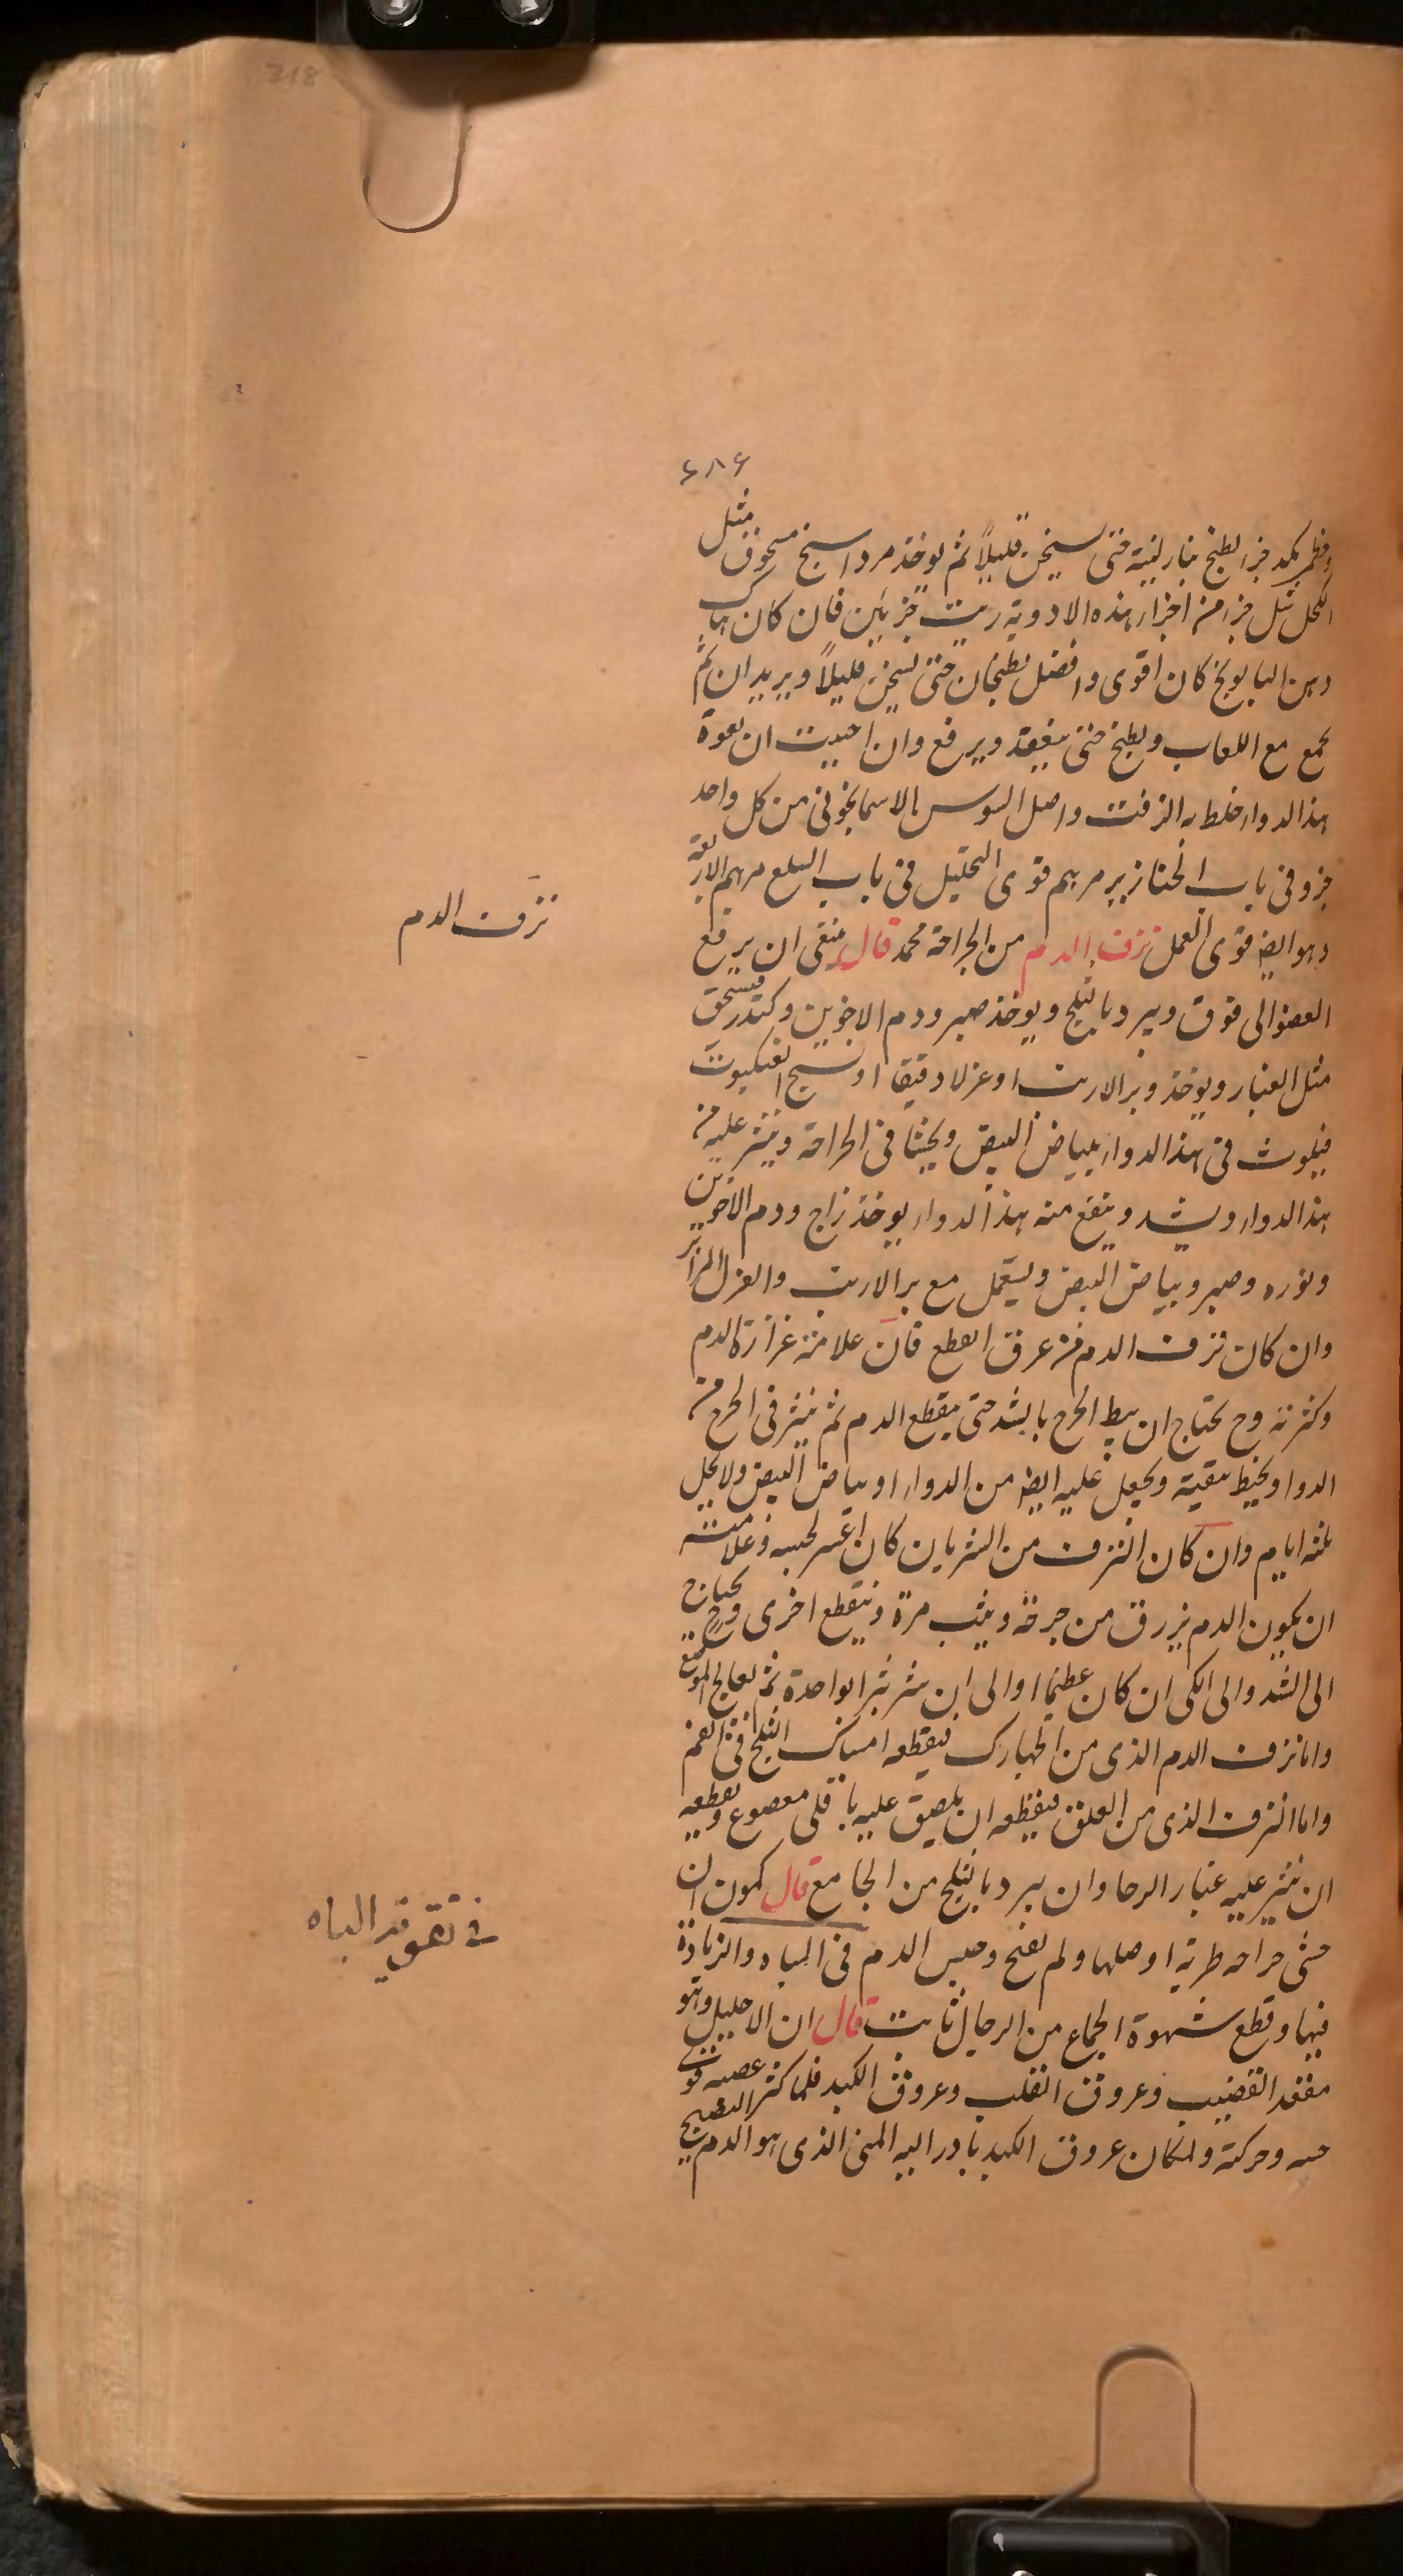 318
۶۸۶
جزء يطبخ بنار لينة حتى يسخن قليلاً ثم يوخذ مرداسنج مسحوق مثل
الكحل مثل جزء من اجزاء هذه الادوية زيت جزئين فان كان هناك
دهن البابونج كان اقوى وافضل يطبخان حتى يسخن قليلاً ويريد ان ثم
يجمع مع اللعاب ويطبخ حتى ينعقد ويرفع وان احببت ان تقوة
هذا الدواء خلط به الزفت واصل السوس الاسمانجونى من كل واحد
جزو فى باب الخنازير مرهم قوى التحليل فى باب السلع مرهم الاربعة
وهو ايضا قوى العمل نزف الدم من الجراحة محمد قال ينبغى ان يرفع
العضو الى فوق ويبرد بالثلج ويوخذ صبر ودم الاخوين وكندر فيسحق
مثل الغبار ويوخذ وبر الارنب او غزلا دقيقا او نسيج العنكبوت
فيلوث فى هذا الدواء ببياض البيض ويحشا فى الجراحة وينثر عليه من
هذا الدواء ويشد وينفع منه هذا الدواء يوخذ زاج ودم الاخوين
ونوره وصبر وبياض البيض ويستعمل مع وبر الارنب والغزل
وان كان نزف الدم من عرق انقطع فان علامته غزارة الدم
وكثرته وح يحتاج ان يبط الجرح بالشد حتى ينقطع الدم ثم ينثر فى الجرح من
الدوا ويخيط بقيته ويجعل عليه ايضا من الدواء او بياض البيض ولا يحل
ثلثه ايام وان كان النزف من الشريان كان اعسر لحبسه وعلامته
ان يكون الدم يزرق من جرحه ويثب مرة وينقطع اخرى وح يحتاج
الى الشد والى الكى ان كان عظيما او الى ان يبتر بترا بواحدة ثم يعالج الموضع
واما نزف الدم الذى من الحبارك فيقطعه امساك الثلج فى الفم
واما النزف الذى من العلق فيقطعه ان يلصق عليه باقلى ويقطعه
ان ينثر عليه غبار الرحا وان يبرد بالثلج من الجامع قال كمون ان
حشى جراحه طرية اوصلها ولم يفتح وحبس الدم فى الباه والزيادة
فيها وقطع شهوة الجماع من الرجال ثابت قال ان الاحليل وهو
القضيب وعروق القلب وعروق الكبد فلما كثر عصبه قوى
حسه وحركته ولمكان عروق الكبد بادر اليه المنى الذى هو الدم النضيج
نزف الدم
فى تقوية الباه